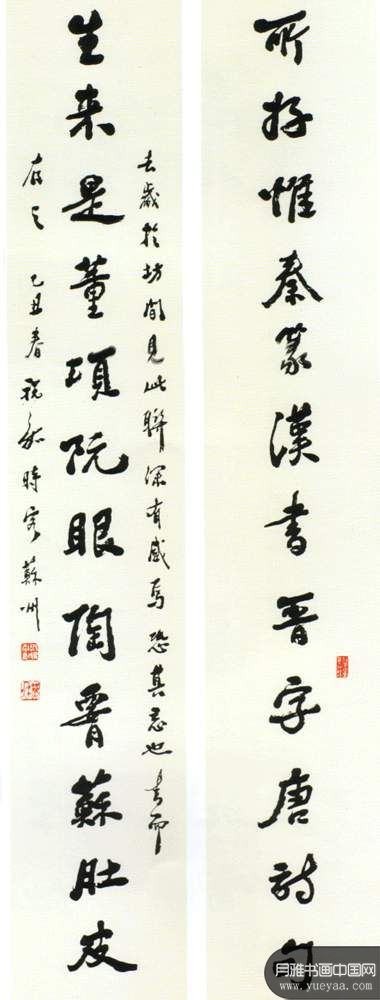 所好惟秦篆漢書晉字唐詩句
生来是董項阮眼陶蘇肚皮
去歲於坊間見此聯深有感焉恐其忘也書而
存之 己丑春祝 時客蘇州
月雅书画中国网
www.yueyaa.com